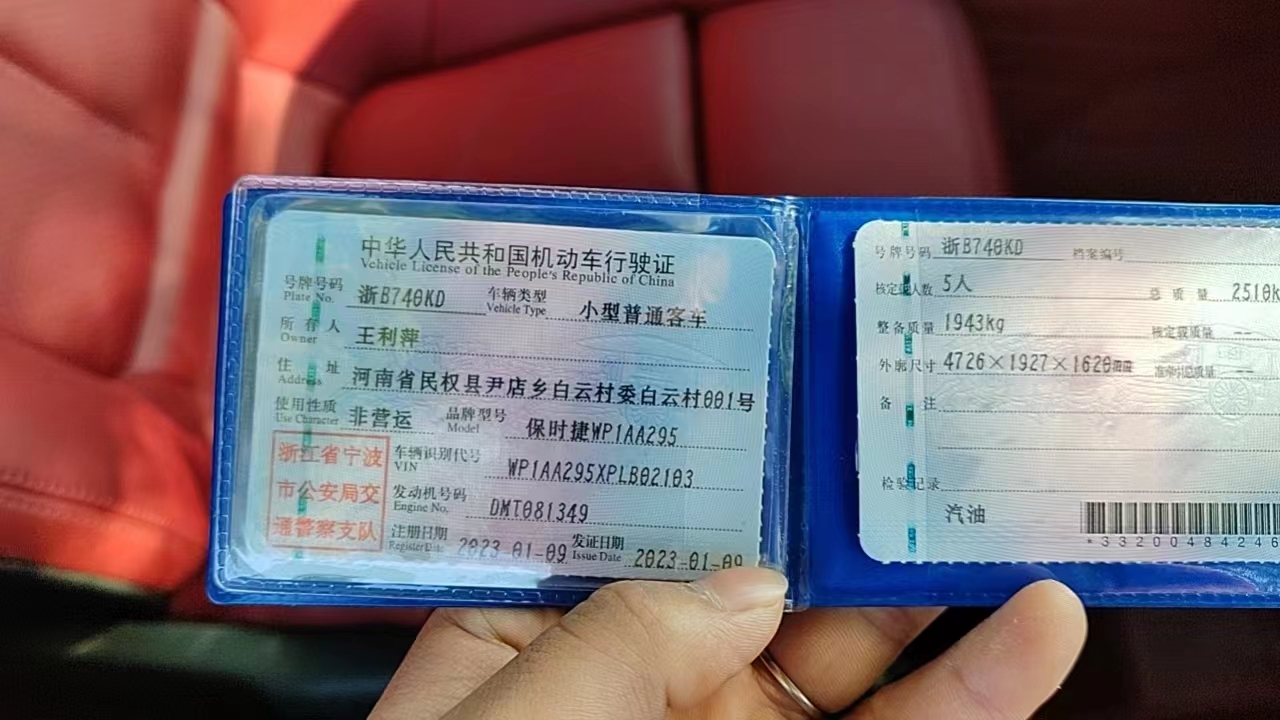 中华人民共和国机动车行驶证
Vehicle License of the People's Republic of China
号牌号码 浙B740KD 车辆类型 小型普通客车
Plate No. Vehicle Type
所有人 王利萍
Owner
住址 河南省民权县尹店乡白云村委白云村001号
Address
使用性质 非营运 品牌型号 保时捷WP1AA295
Use Character Model
浙江省宁波
市公安局交
通警察支队
车辆识别代号 WP1AA295XPLB02103
VIN
发动机号码 DMT081349
Engine No.
注册日期 2023-01-09 发证日期 2023-01-09
Register Date Issue Date
号牌号码 浙B740KD 档案编号
核定载人数 5人 总质量 2510k
整备质量 1943kg 核定载质量 --
外廓尺寸 4726×1927×1620mm 准牵引总质量 --
备注
检验记录
汽油
*33200484246